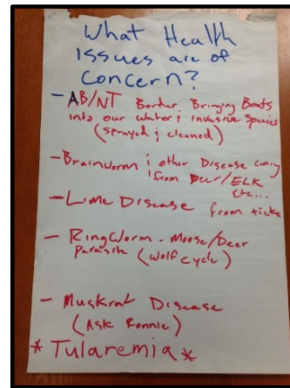 What Health
Issues are of
Concern?
- AB/NT Border. Bringing Boats
into our water; invasive Species
(sprayed & cleaned)
- Brainworm & other Disease coming
from Deer/ELK
etc...
- Lime Disease from ticks
- RingWorm - Moose/Deer
parasite (Wolf cycle)
- Muskrat Disease
(Ask Ronnie)
* Tularemia *